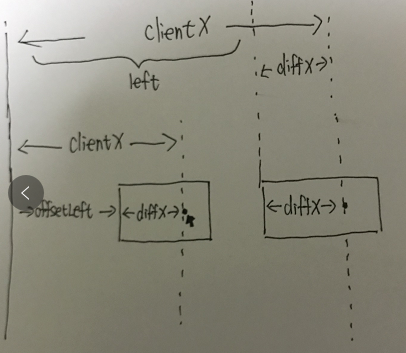 clientX
left
diffX
clientX
offsetLeft
diffX
diffX